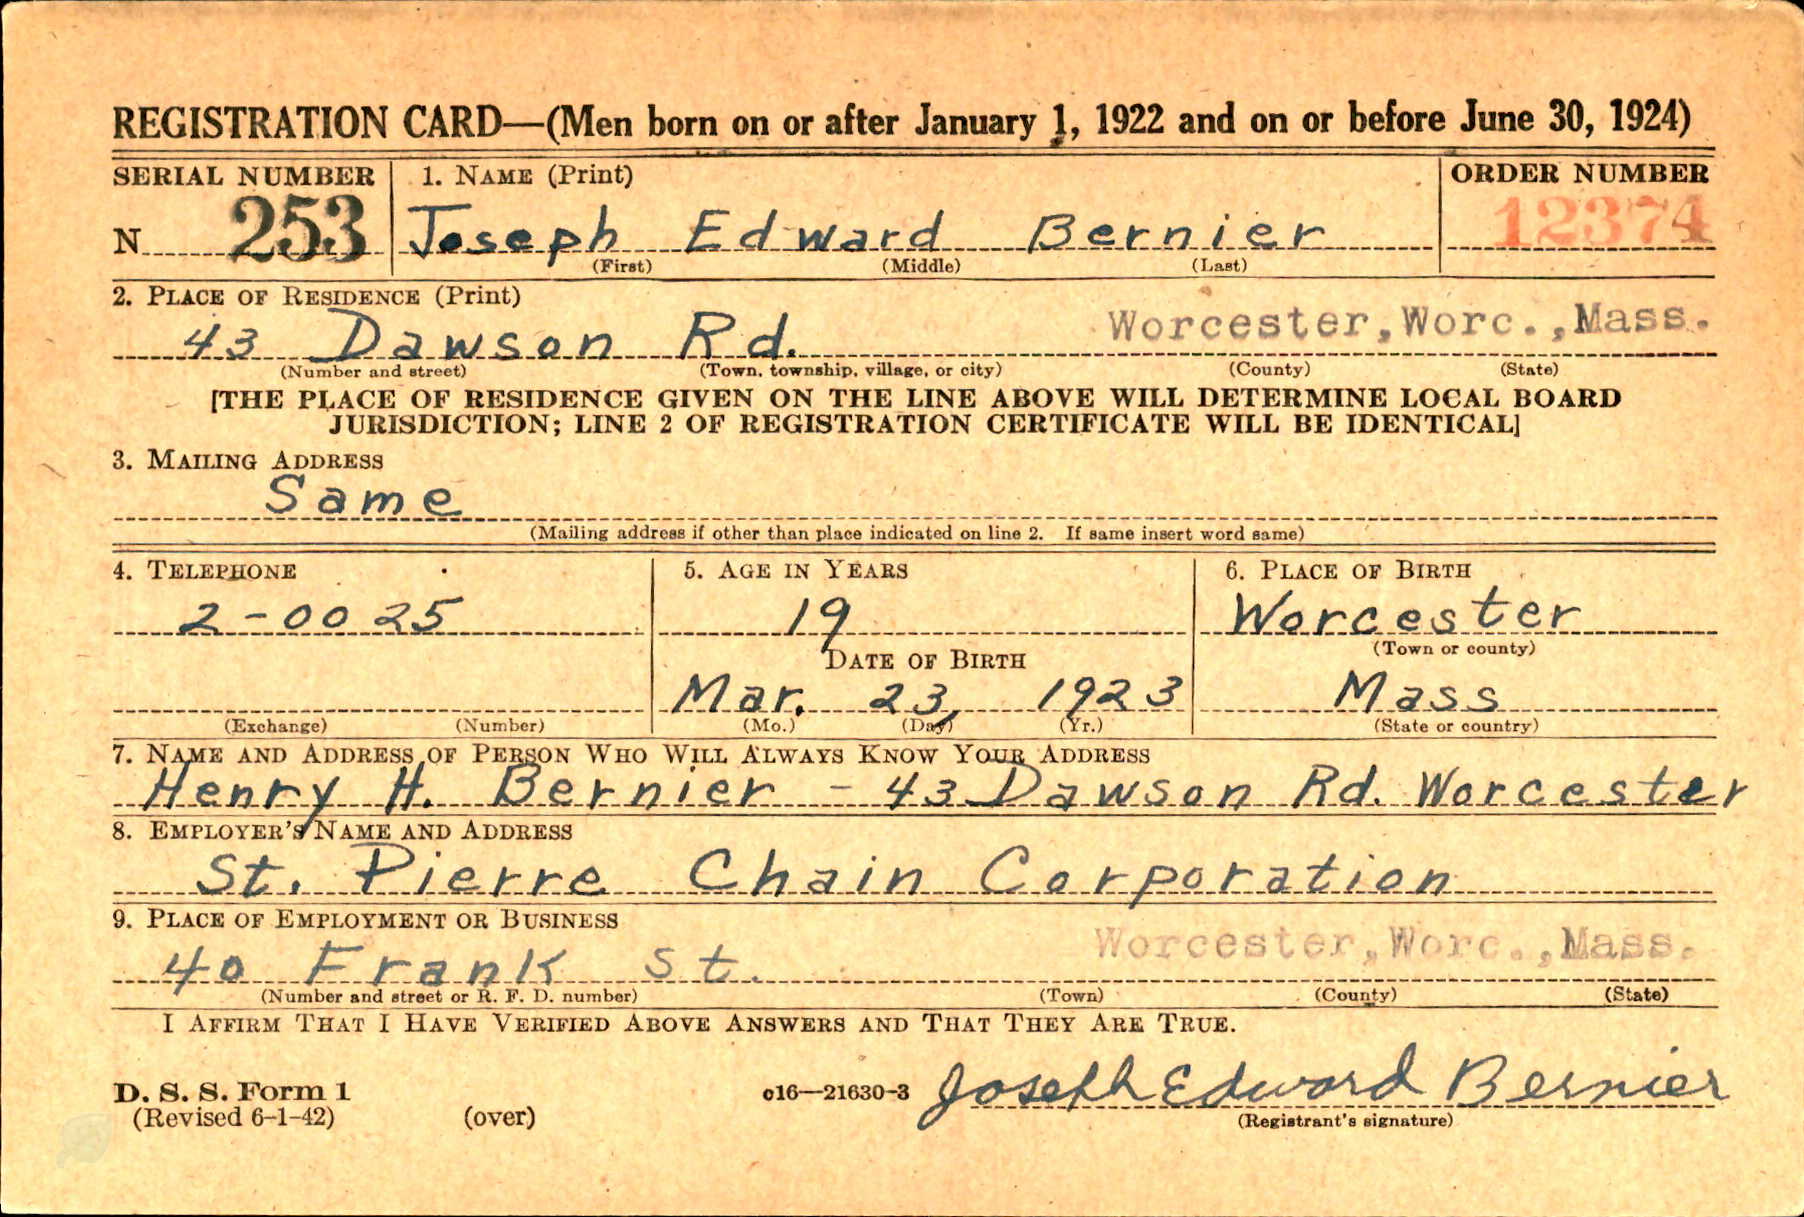 REGISTRATION CARD—(Men born on or after January 1, 1922 and on or before June 30, 1924)
SERIAL NUMBER 1. NAME (Print) ORDER NUMBER
N 253 Joseph Edward Bernier 12374
(First) (Middle) (Last)
2. PLACE OF RESIDENCE (Print)
43 Dawson Rd. Worcester, Worc., Mass.
(Number and street) (Town, township, village, or city) (County) (State)
[THE PLACE OF RESIDENCE GIVEN ON THE LINE ABOVE WILL DETERMINE LOCAL BOARD
JURISDICTION; LINE 2 OF REGISTRATION CERTIFICATE WILL BE IDENTICAL]
3. MAILING ADDRESS
Same
(Mailing address if other than place indicated on line 2. If same insert word same)
4. TELEPHONE 5. AGE IN YEARS 6. PLACE OF BIRTH
2-0025 19 Worcester
(Town or county)
DATE OF BIRTH
Mar. 23, 1923 Mass
(Exchange) (Number) (Mo.) (Day) (Yr.) (State or country)
7. NAME AND ADDRESS OF PERSON WHO WILL ALWAYS KNOW YOUR ADDRESS
Henry H. Bernier - 43 Dawson Rd. Worcester
8. EMPLOYER'S NAME AND ADDRESS
St. Pierre Chain Corporation
9. PLACE OF EMPLOYMENT OR BUSINESS
40 Frank St. Worcester, Worc., Mass.
(Number and street or R. F. D. number) (Town) (County) (State)
I AFFIRM THAT I HAVE VERIFIED ABOVE ANSWERS AND THAT THEY ARE TRUE.
D. S. S. Form 1 c16—21630-3 Joseph Edward Bernier
(Revised 6-1-42) (over) (Registrant's signature)